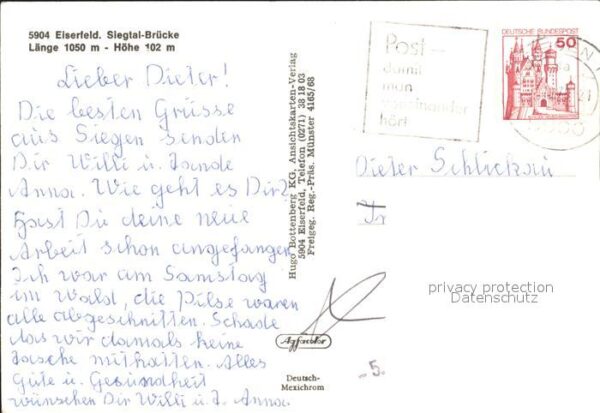 5904 Eiserfeld. Siegtal-Brücke
Länge 1050 m - Höhe 102 m
Lieber Dieter!
Die besten Grüsse
aus Siegen senden
Dir Willi u. Tande
Anna. Wie geht es Dir?
Hast Du deine neue
Arbeit schon angefangen
Ich war am Samstag
im Wald, die Pilse waren
alle abgeschnitten. Schade
das wir damals keine
Tasche mithatten. Alles
Gute u. Gesundheit
wünschen Dir Willi u. T. Anna.
Hugo Bottenberg KG, Ansichtskarten-Verlag
5904 Eiserfeld, Telefon (0271) 38 18 03
Freigeg. Reg.-Präs. Münster 4165/68
Agfacolor
Deutsch-
Mexichrom
Post –
damit
man
voneinander
hört
DEUTSCHE BUNDESPOST
50
Dieter Schlickau
privacy protection
Datenschutz
-5.